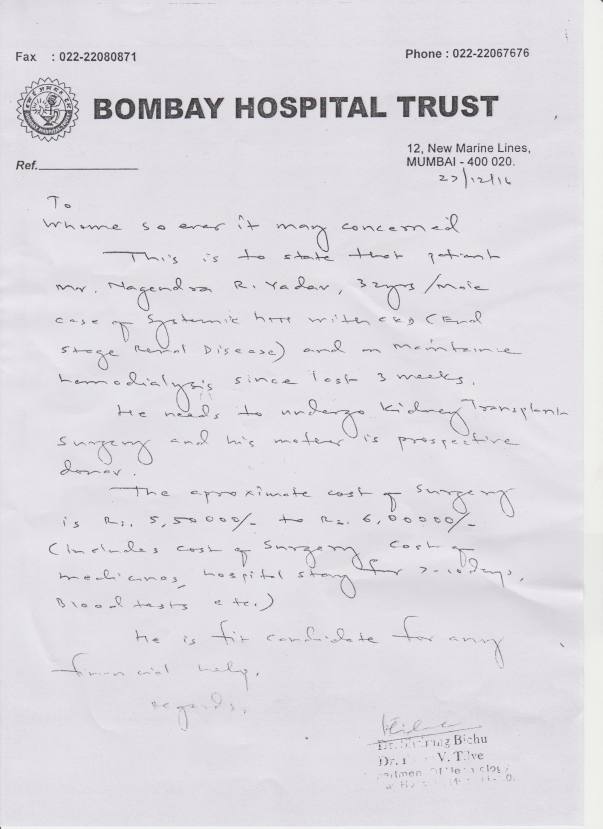 Fax : 022-22080871
Phone : 022-22067676
BOMBAY HOSPITAL TRUST
12, New Marine Lines,
MUMBAI - 400 020.
Ref.
27/12/16
To
Whome so ever it may concerned
This is to state that patient
Mr. Nagendra R. Yadav, 32yrs/Male
case of Systemic HTN with CKD (End
stage Renal Disease) and on maintaince
hemodialysis since last 3 weeks.
He needs to undergo Kidney Transplant
Surgery and his mother is prospective
donar.
The aproximate cost of Surgery
is Rs. 5,50000/- to Rs. 6,00000/-
(Includes cost of Surgery, cost of
medicines, hospital stay for 7-10 days,
Blood tests etc.)
He is fit candidate for any
financial help.
Regards,
Bichu
Dr. V.